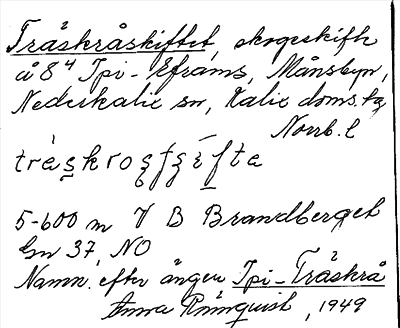 Tråskråskiftet, skogsskifte
å 8⁴ Ipi-Efraims, Månsbyn,
Nederkalix sn, Kalix doms.tg
Norrb. l
5-600 m V B Brandberget
Gn 37, NO
Namn. efter ängen Ipi-Tråskrå
Anna Rönnquist, 1949